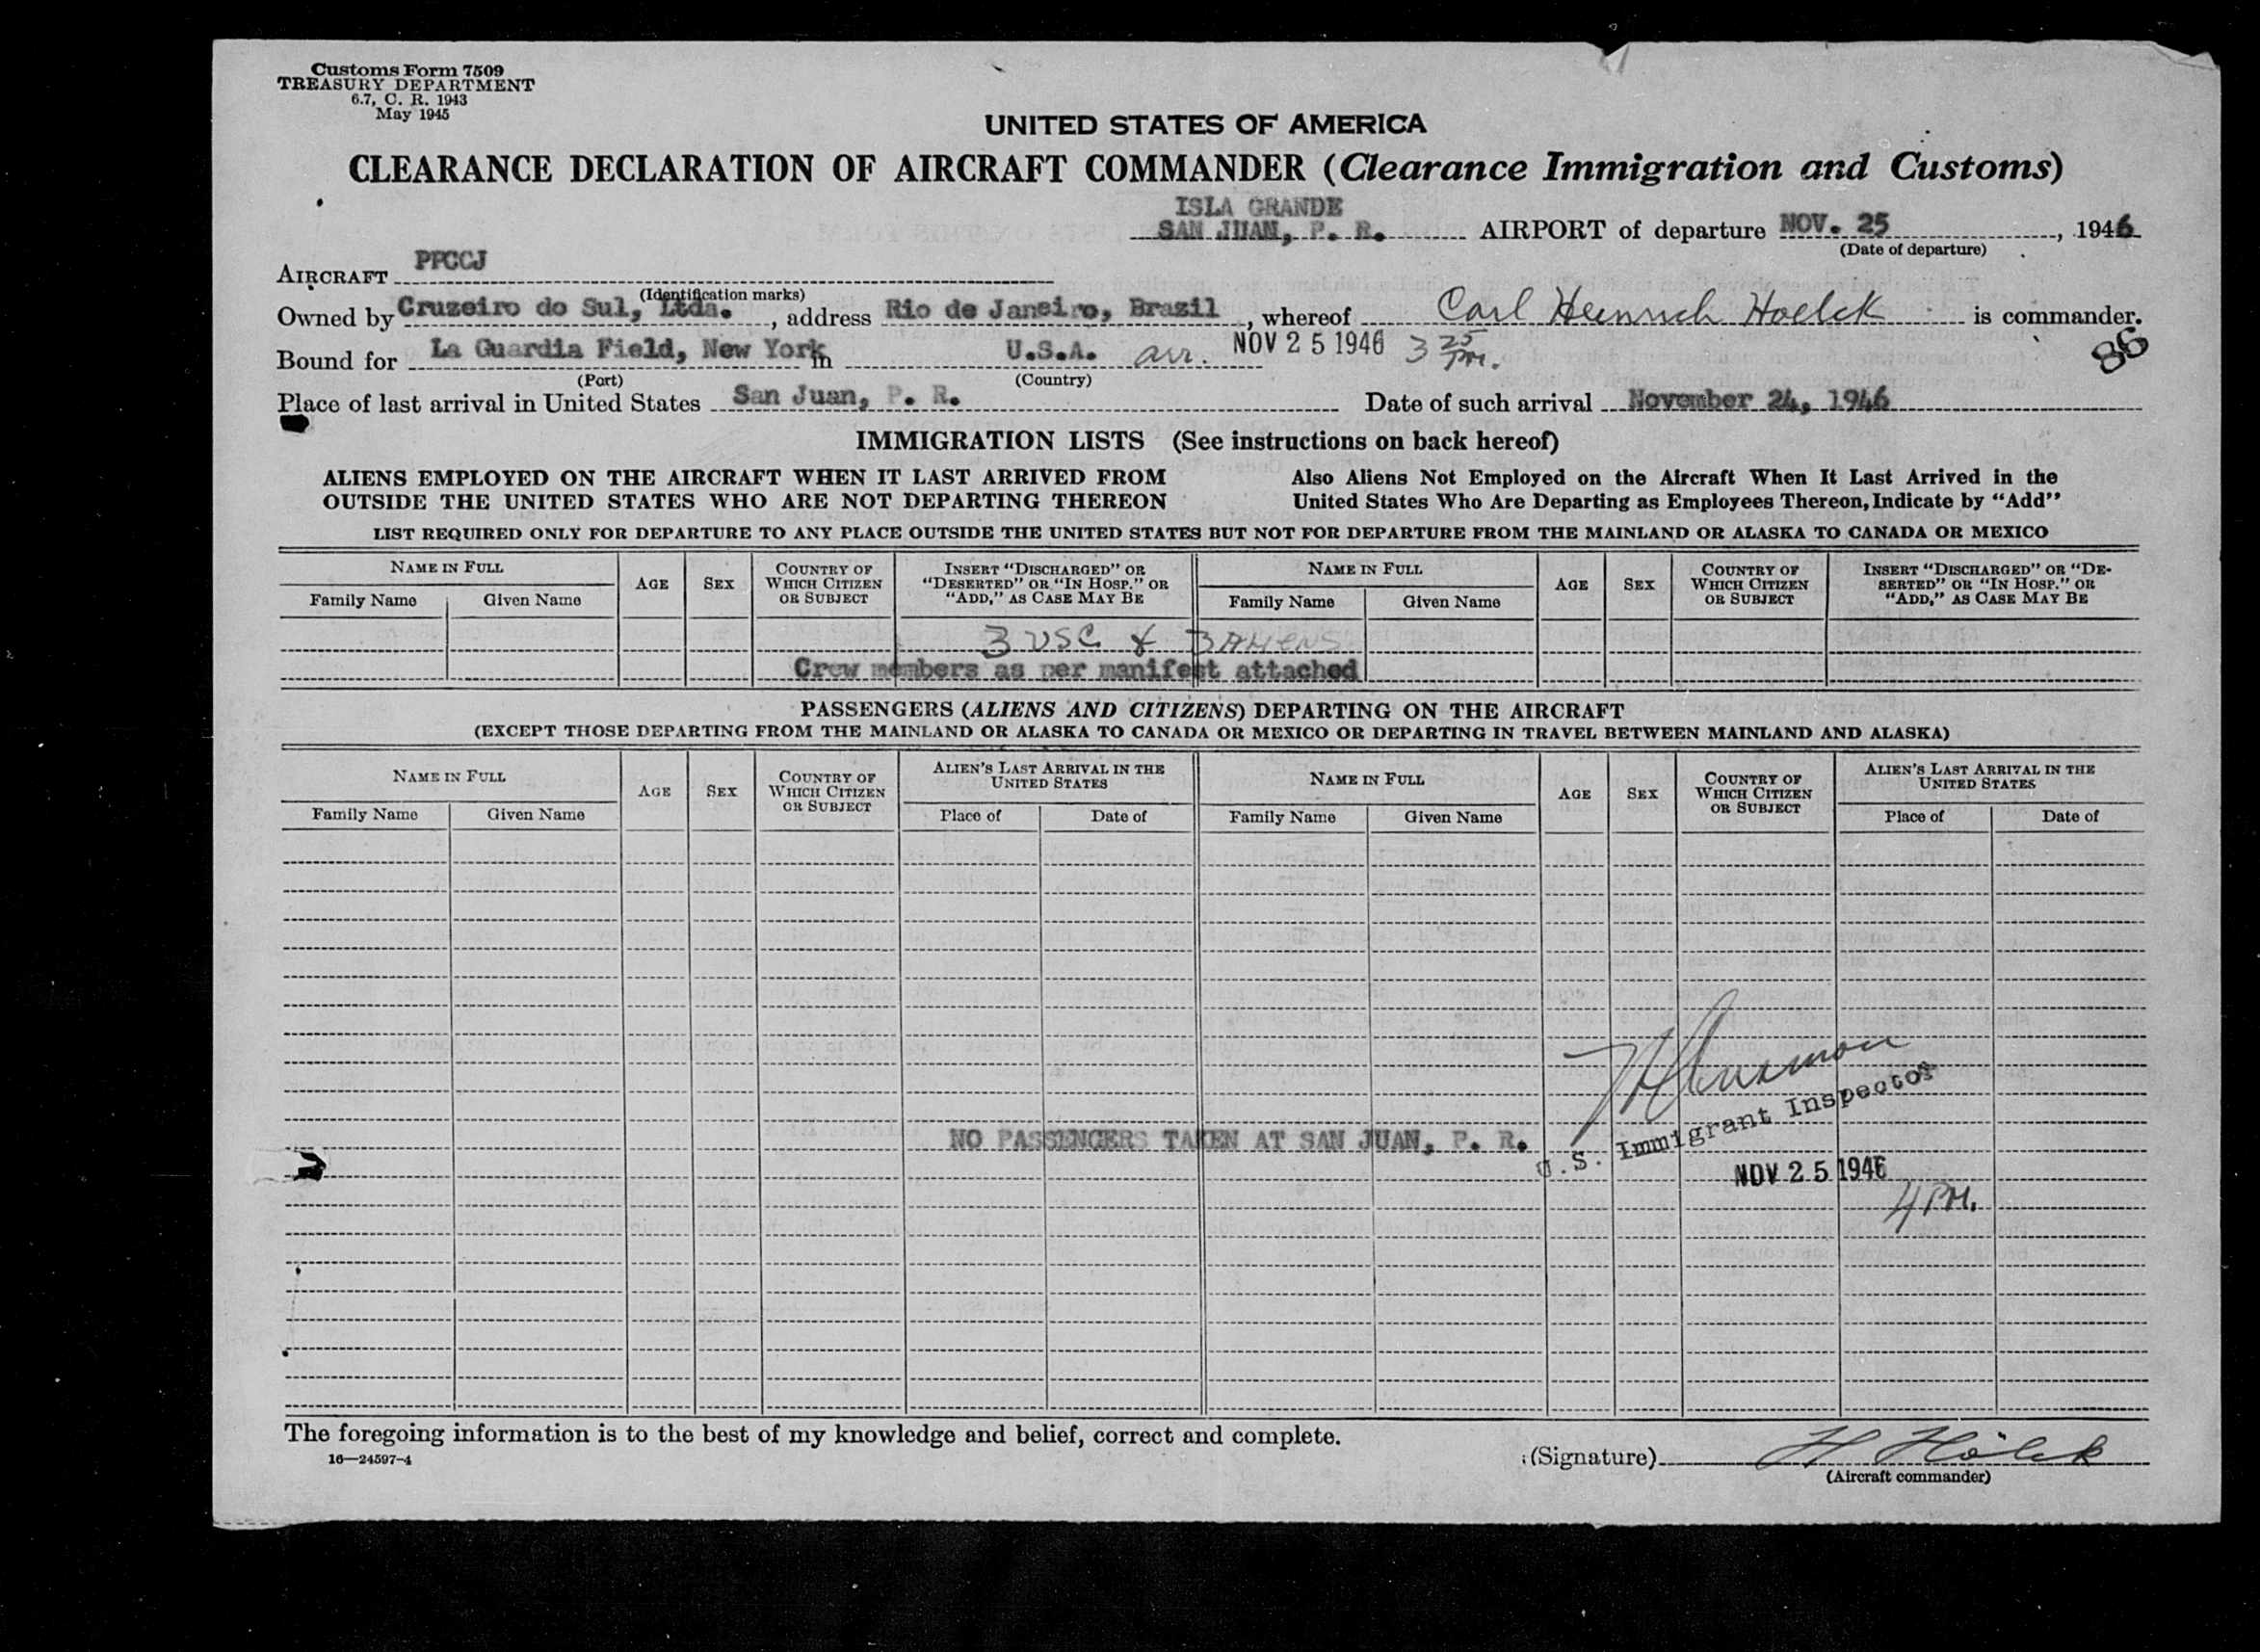 Customs Form 7509
TREASURY DEPARTMENT
6.7, C. R. 1943
May 1945
UNITED STATES OF AMERICA
CLEARANCE DECLARATION OF AIRCRAFT COMMANDER (Clearance Immigration and Customs)
ISLA GRANDE
SAN JUAN, P. R. AIRPORT of departure NOV. 25, 1946
(Date of departure)
AIRCRAFT PPCCJ
(Identification marks)
Owned by Cruzeiro do Sul, Ltda., address Rio de Janeiro, Brazil, whereof Carl Heinrich Hoelck is commander.
Bound for La Guardia Field, New York in U.S.A. arr. NOV 25 1946 3 25 PM. 86
(Port) (Country)
Place of last arrival in United States San Juan, P. R. Date of such arrival November 24, 1946
IMMIGRATION LISTS (See instructions on back hereof)
ALIENS EMPLOYED ON THE AIRCRAFT WHEN IT LAST ARRIVED FROM
OUTSIDE THE UNITED STATES WHO ARE NOT DEPARTING THEREON
Also Aliens Not Employed on the Aircraft When It Last Arrived in the
United States Who Are Departing as Employees Thereon, Indicate by "Add"
LIST REQUIRED ONLY FOR DEPARTURE TO ANY PLACE OUTSIDE THE UNITED STATES BUT NOT FOR DEPARTURE FROM THE MAINLAND OR ALASKA TO CANADA OR MEXICO
NAME IN FULL
Family Name Given Name
AGE
SEX
COUNTRY OF
WHICH CITIZEN
OR SUBJECT
INSERT "DISCHARGED" OR
"DESERTED" OR "IN HOSP." OR
"ADD," AS CASE MAY BE
NAME IN FULL
Family Name Given Name
AGE
SEX
COUNTRY OF
WHICH CITIZEN
OR SUBJECT
INSERT "DISCHARGED" OR "DE-
SERTED" OR "IN HOSP." OR
"ADD," AS CASE MAY BE
3 USC & 3 ALIENS
Crew members as per manifest attached
PASSENGERS (ALIENS AND CITIZENS) DEPARTING ON THE AIRCRAFT
(EXCEPT THOSE DEPARTING FROM THE MAINLAND OR ALASKA TO CANADA OR MEXICO OR DEPARTING IN TRAVEL BETWEEN MAINLAND AND ALASKA)
NAME IN FULL
Family Name Given Name
AGE
SEX
COUNTRY OF
WHICH CITIZEN
OR SUBJECT
ALIEN'S LAST ARRIVAL IN THE
UNITED STATES
Place of Date of
NAME IN FULL
Family Name Given Name
AGE
SEX
COUNTRY OF
WHICH CITIZEN
OR SUBJECT
ALIEN'S LAST ARRIVAL IN THE
UNITED STATES
Place of Date of
NO PASSENGERS TAKEN AT SAN JUAN, P. R.
U.S. Immigrant Inspector
NOV 25 1946
4 PM.
The foregoing information is to the best of my knowledge and belief, correct and complete.
16—24597-4
(Signature) H Hölck
(Aircraft commander)